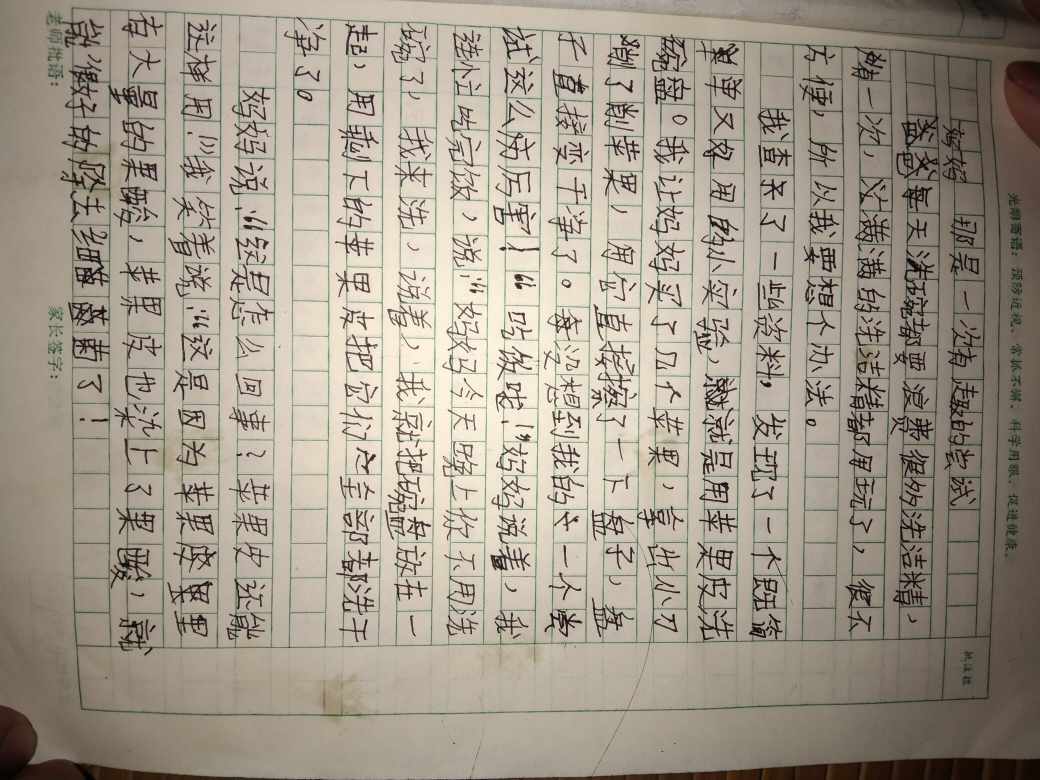 光明寄语：预防近视，常抓不懈；科学用眼，促进健康。
批注栏
那是一次有趣的尝试
妈妈
爸爸每天洗碗都要浪费很多洗洁精，
有一次，义满满的洗洁精都用玩了，很不
方便，所以我要想个办法。
我查木了一些资料，发现了一个既简
单又好用的小实验，就是用苹果皮洗
碗盘。我让妈妈买了几个苹果，拿出小刀
削了削苹果，用它直接擦了一下盘子，盘
子直接变干净了。没想到我的一个尝
试这么厉害！“吃饭啦！”妈妈说着，我
连忙吃完饭，说：“妈妈今天晚上你不用洗
碗了，我来洗，说着，我就把碗盘放在一
起，用剩下的苹果皮把它们全部都洗干
净了。
妈妈说：“这是怎么回事？苹果皮还能
这样用！”我笑着说：“这是因为苹果里
有大量的果酸，苹果皮也染上了果酸，就
能很好的除去细菌了！
老师批语：
家长签字：